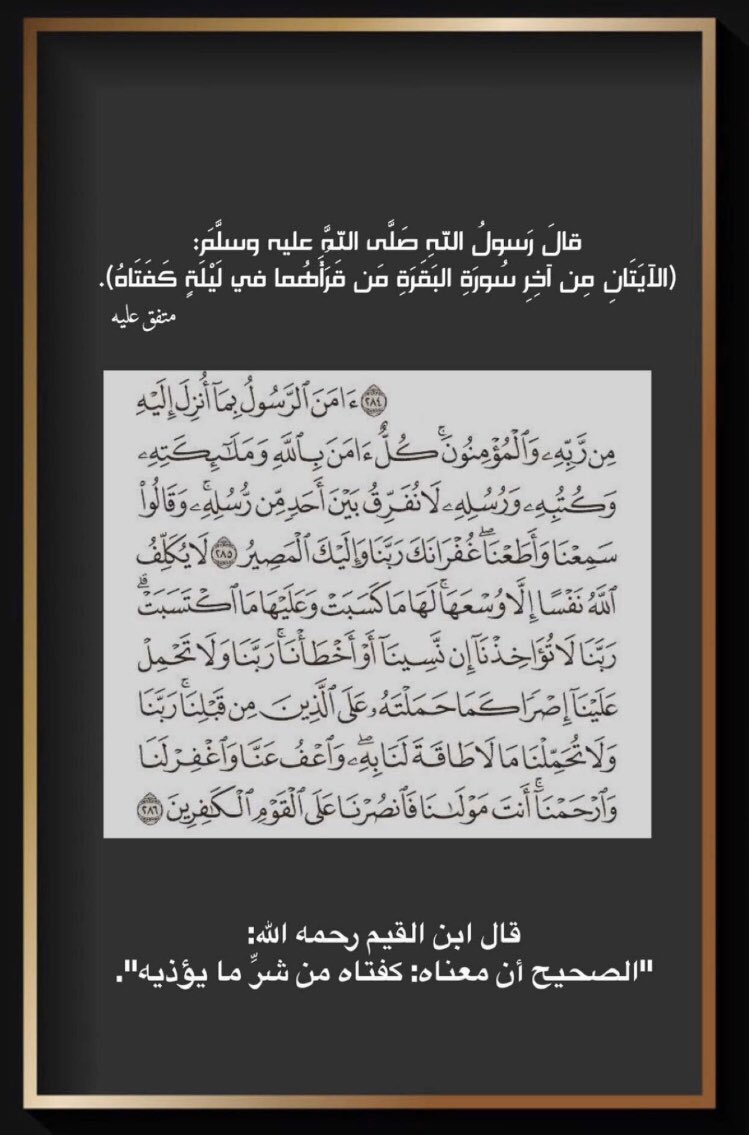 قالَ رَسولُ اللهِ صَلَّى اللهُ عليه وسلَّمَ:
(الآيَتَانِ مِن آخِرِ سُورَةِ البَقَرَةِ مَن قَرَأَهُما في لَيْلَةٍ كَفَتَاهُ).
متفق عليه
٢٨٤ ءَامَنَ ٱلرَّسُولُ بِمَآ أُنزِلَ إِلَيْهِ
مِن رَّبِّهِۦ وَٱلْمُؤْمِنُونَۚ كُلٌّ ءَامَنَ بِٱللَّهِ وَمَلَٰٓئِكَتِهِۦ
وَكُتُبِهِۦ وَرُسُلِهِۦ لَا نُفَرِّقُ بَيْنَ أَحَدٍ مِّن رُّسُلِهِۦۚ وَقَالُوا۟
سَمِعْنَا وَأَطَعْنَاۖ غُفْرَانَكَ رَبَّنَا وَإِلَيْكَ ٱلْمَصِيرُ ٢٨٥ لَا يُكَلِّفُ
ٱللَّهُ نَفْسًا إِلَّا وُسْعَهَاۚ لَهَا مَا كَسَبَتْ وَعَلَيْهَا مَا ٱكْتَسَبَتْۗ
رَبَّنَا لَا تُؤَاخِذْنَآ إِن نَّسِينَآ أَوْ أَخْطَأْنَاۚ رَبَّنَا وَلَا تَحْمِلْ
عَلَيْنَآ إِصْرًا كَمَا حَمَلْتَهُۥ عَلَى ٱلَّذِينَ مِن قَبْلِنَاۚ رَبَّنَا
وَلَا تُحَمِّلْنَا مَا لَا طَاقَةَ لَنَا بِهِۦۖ وَٱعْفُ عَنَّا وَٱغْفِرْ لَنَا
وَٱرْحَمْنَآۚ أَنتَ مَوْلَىٰنَا فَٱنصُرْنَا عَلَى ٱلْقَوْمِ ٱلْكَٰفِرِينَ ٢٨٦
قال ابن القيم رحمه الله:
"الصحيح أن معناه: كفتاه من شرِّ ما يؤذيه".